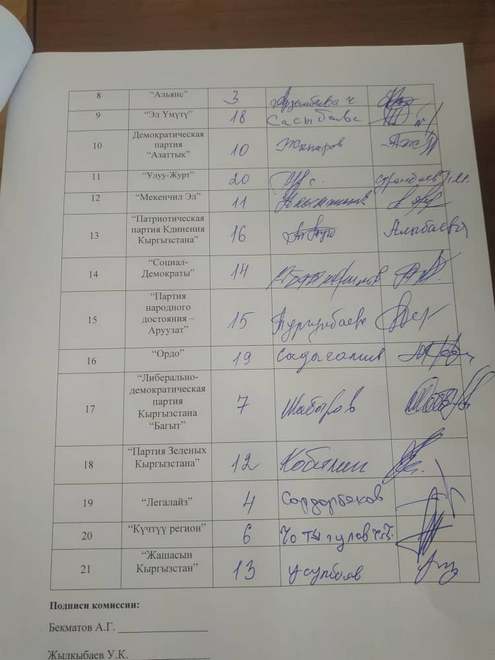 8 "Альянс" 3
9 "Эл Үмүтү" 18 Сасыбаев
10 Демократическая
партия
"Азаттык" 10 Жапаров
11 "Улуу-Журт" 20
12 "Мекенчил Эл" 11
13 "Патриотическая
партия Единения
Кыргызстана" 16 Алыбаева
14 "Социал-
Демократы" 14
15 "Партия
народного
достояния –
Аруузат" 15 Нургунбаева
16 "Ордо" 19 Садыгалиев
17 "Либерально-
демократическая
партия
Кыргызстана
"Багыт" 7 Шабыров
18 "Партия Зеленых
Кыргызстана" 12 Кобялин
19 "Легалайз" 4 Сордорбеков
20 "Күчтүү регион" 6
21 "Жашасын
Кыргызстан" 13 Усупбаев
Подписи комиссии:
Бекматов А.Г. ______________
Жылкыбаев У.К. ______________